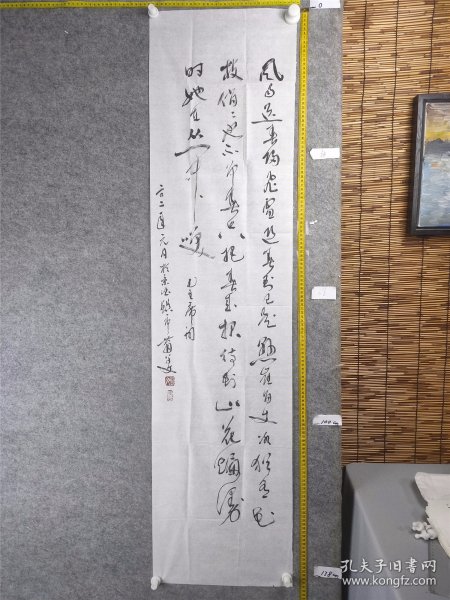 风雨送春归飞雪迎春到已是悬崖百丈冰犹有花
枝俏俏也不争春只把春来报待到山花烂漫
时她在丛中笑
毛主席词
元月于景德镇市
孔夫子旧书网
www.kongfz.com